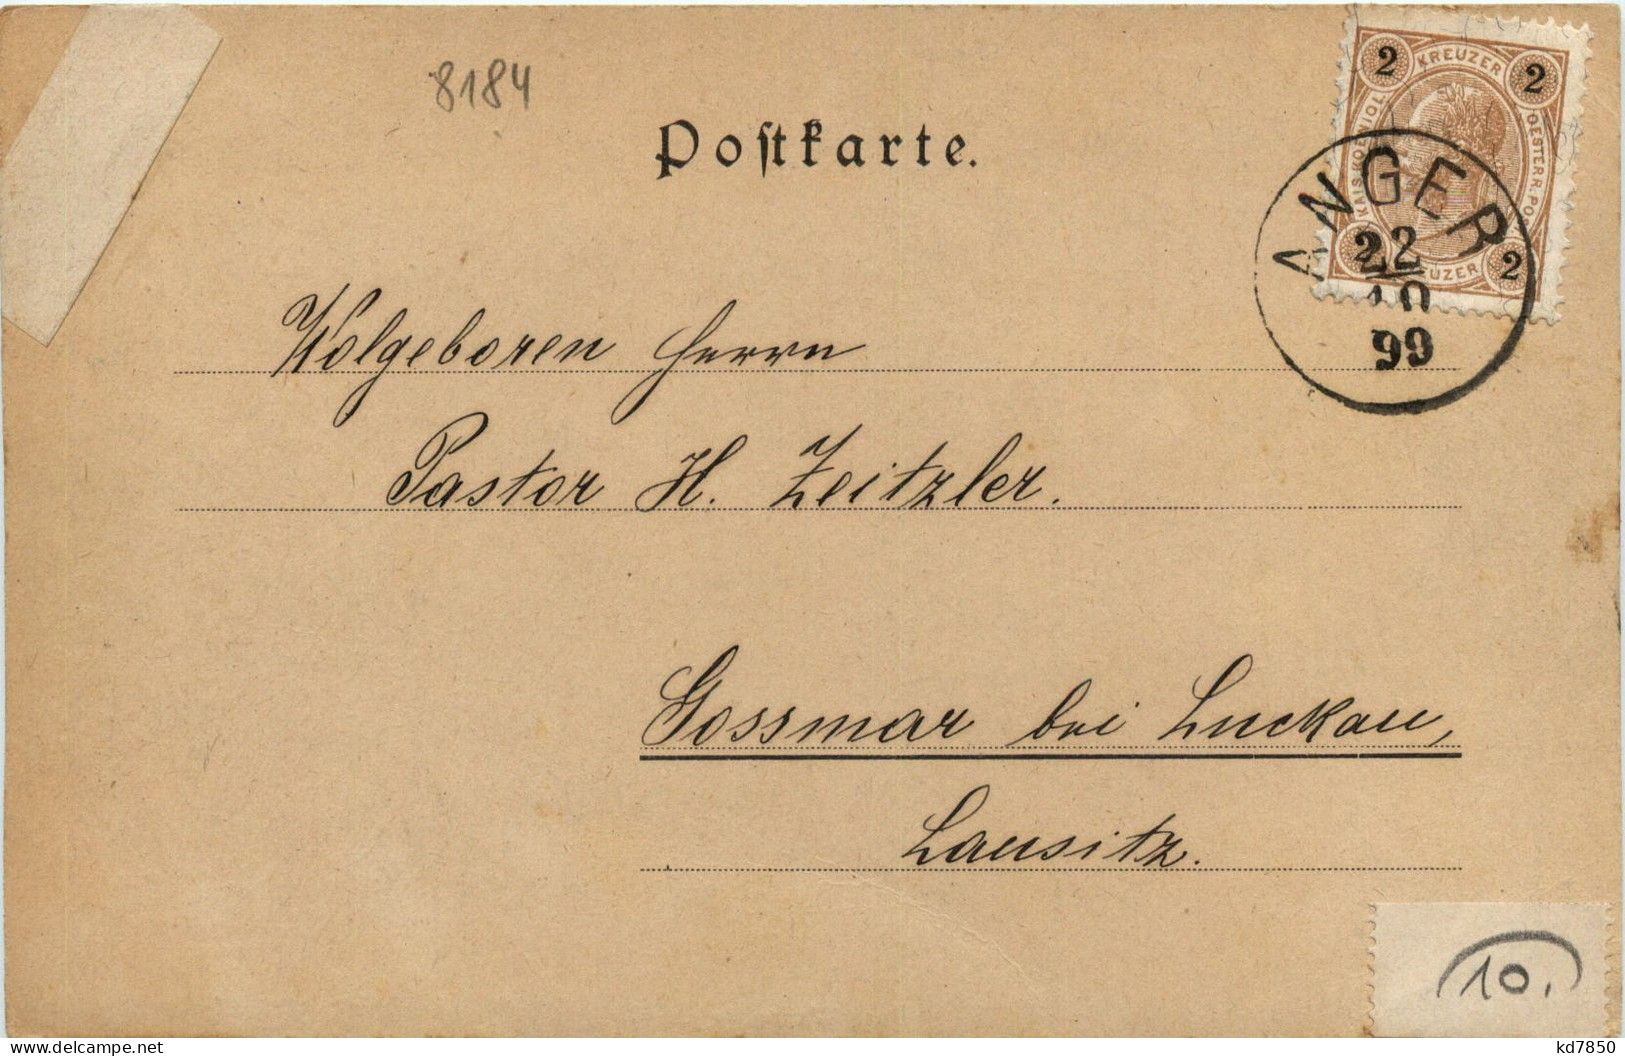 8184
Postkarte.
2 KREUZER 2
KAIS. KOENIGL. OESTERR. POST
2 KREUZER 2
ANGER
22
10
99
Wolgeboren Herrn
Pastor H. Zeitzler.
Gossmar bei Luckau,
Lausitz.
10.
www.delcampe.net
kd7850